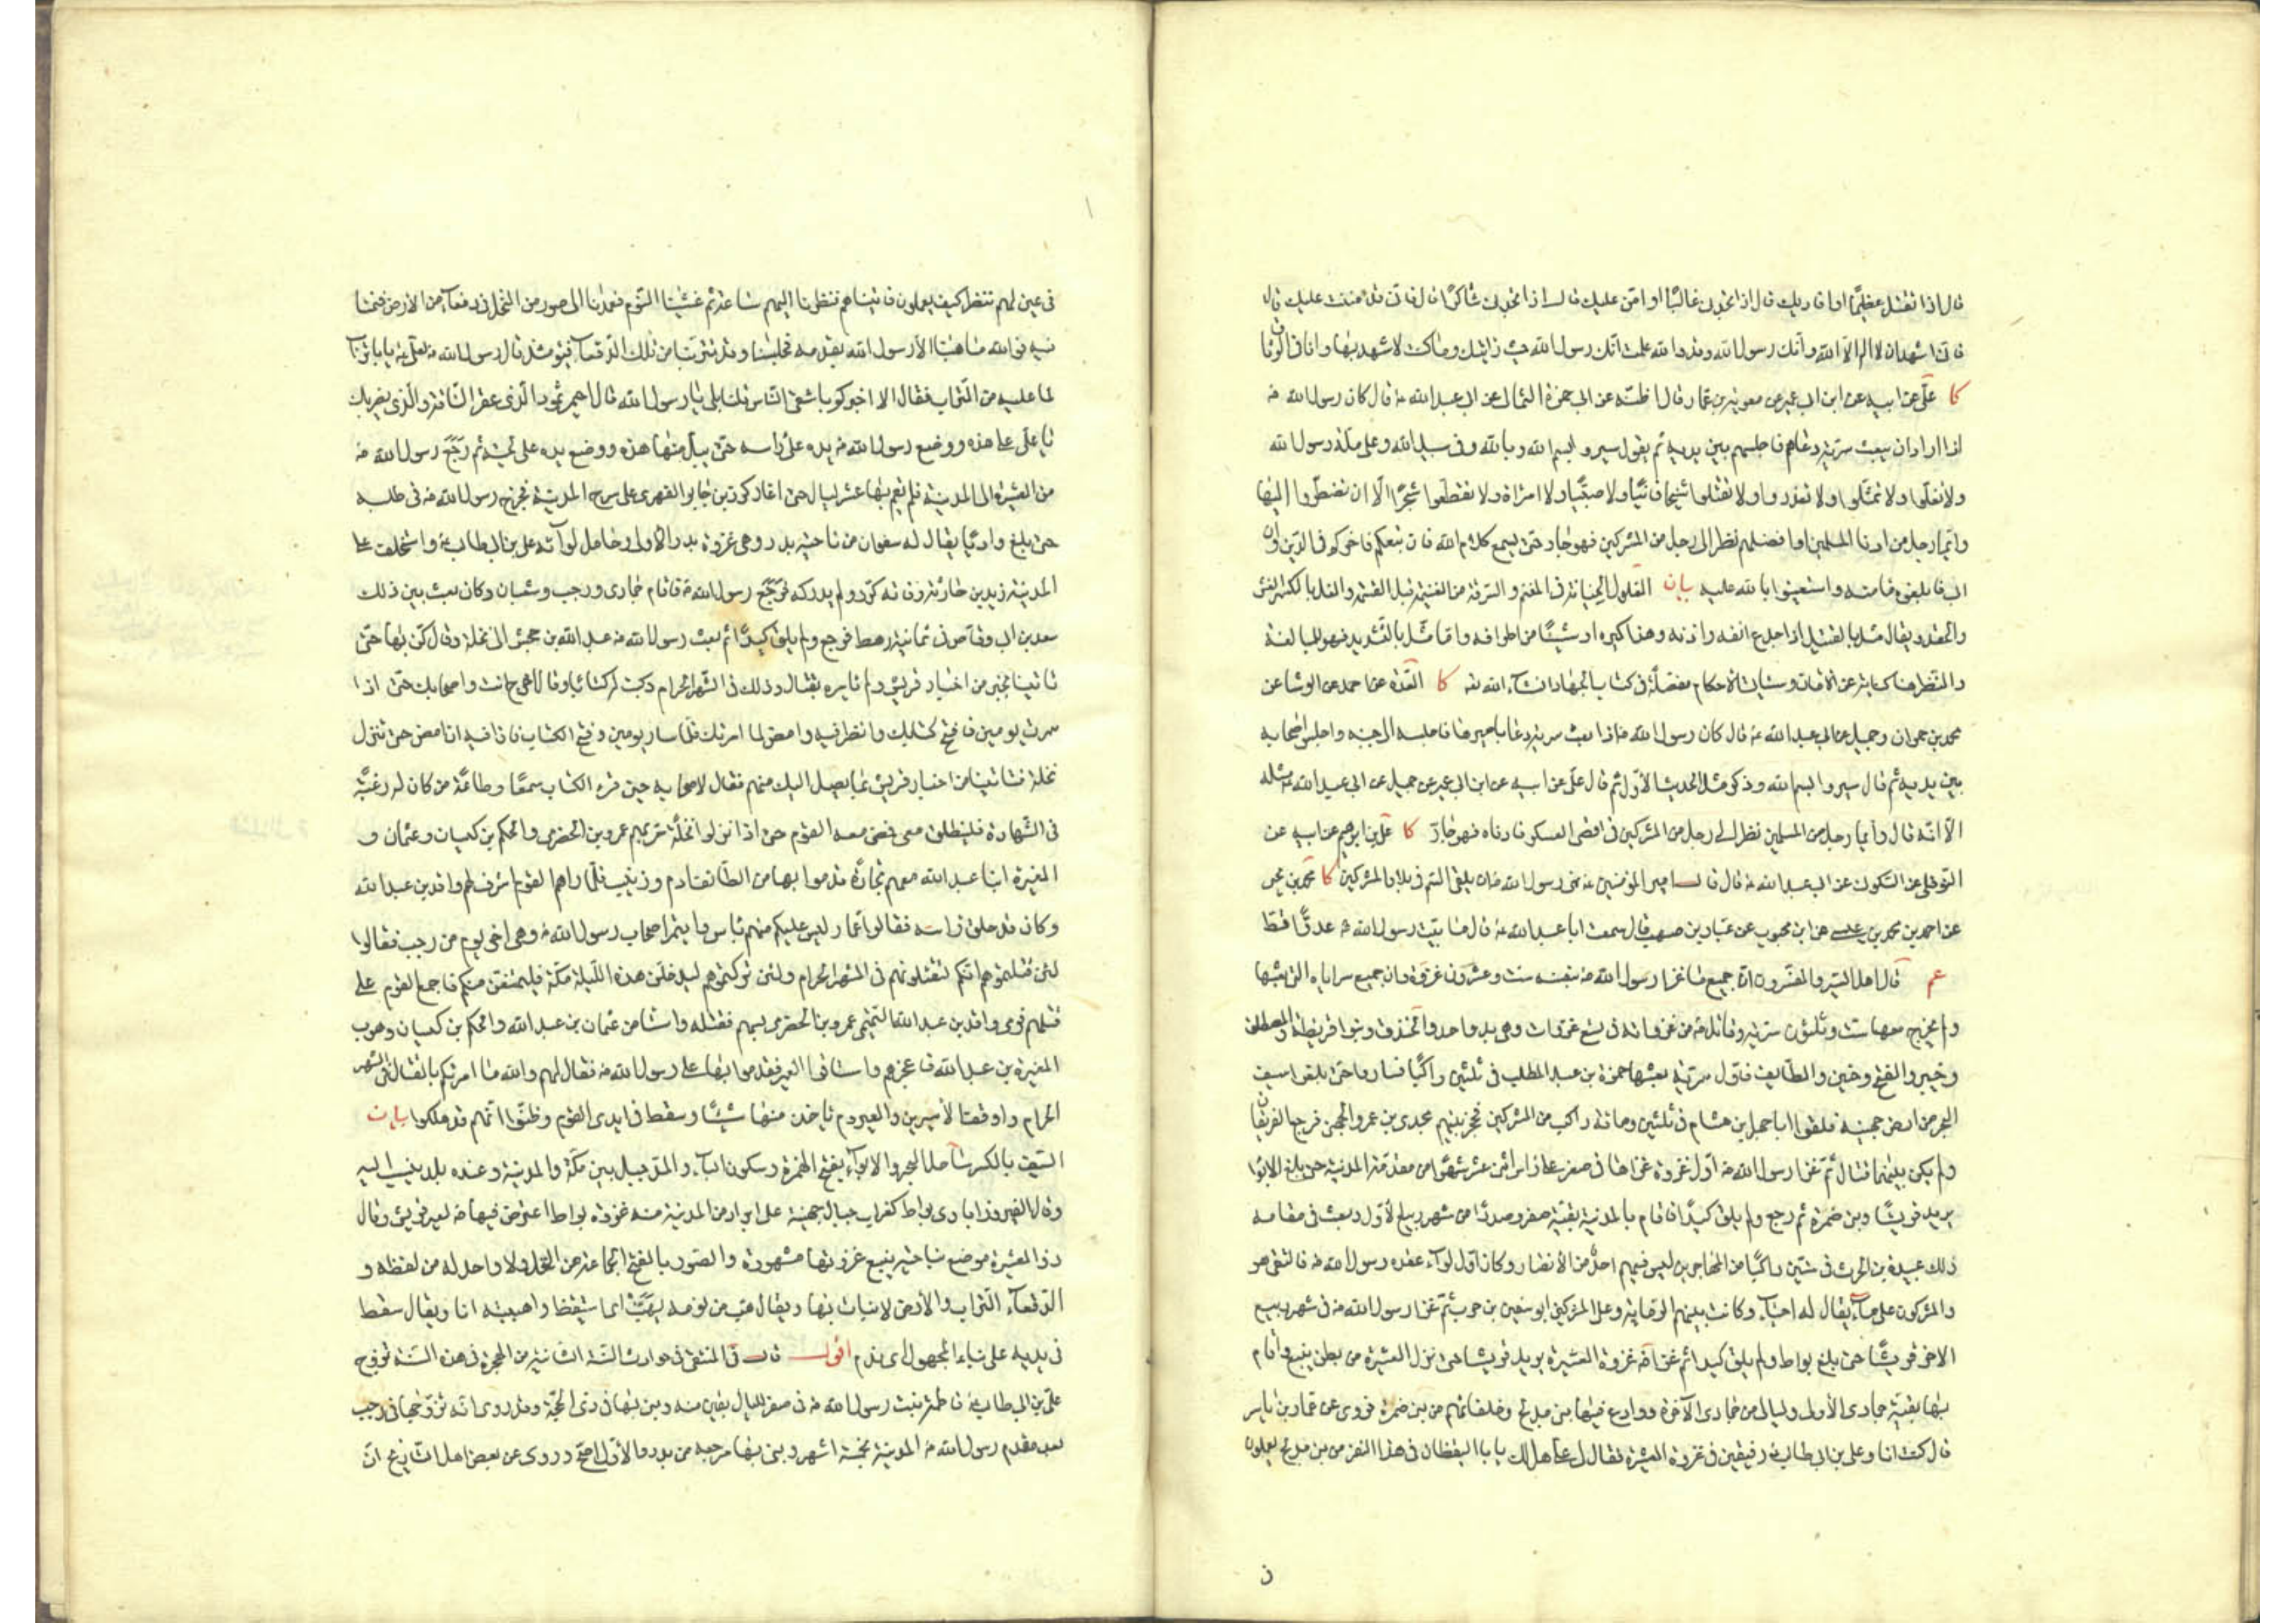 قال اذا تقتل عظيما او افاديك قال اذا تجدني غاليا او امن عليك قال اذا تجدني شاكرا قال فاني قد مننت عليك قال
فاني اشهد ان لا اله الا الله وانك رسول الله وقد والله علمت انك رسول الله حيث رايتك وما كنت لاشهد بها وانا في الوثاق
كا علي عن ابيه عن ابن ابي عمير عن معوية بن عمار قال اظنه عن ابي حمزة الثمالي عن ابي عبد الله ع قال كان رسول الله ص
اذا اراد ان يبعث سرية دعاهم فاجلسهم بين يديه ثم يقول سيروا بسم الله وبالله وفي سبيل الله وعلى ملة رسول الله
ولا تغلوا ولا تمثلوا ولا تغدروا ولا تقتلوا شيخا فانيا ولا صبيا ولا امراة ولا تقطعوا شجرا الا ان تضطروا اليها
وايما رجل من ادنا المسلمين او افضلهم نظر الى رجل من المشركين فهو جار حتى يسمع كلام الله فان تبعكم فاخوكم في الدين وان
ابى فابلغوه مامنه واستعينوا بالله عليه بيان الغلول الخيانة في المغنم والسرقة من الغنيمة قبل القسمة والغل بالكسر الغش
والحقد ويقال مثل بالقتيل اذا جدع انفه واذنه ومذاكيره او شيئا من اطرافه واما مثل بالتشديد فهو للمبالغة
والنظر هنا كناية عن الامان وسيات الاحكام مفصلة في كتاب الجهاد ان شاء الله تع كا العدة عن احمد عن الوشا عن
محمد بن حمران وجميل عن ابي عبد الله ع قال كان رسول الله ص اذا بعث سرية دعا باميرها فاجلسه الى جنبه واجلس اصحابه
بين يديه ثم قال سيروا بسم الله وذكر مثل الحديث الاول ثم قال علي عن ابيه عن ابن ابي عمير عن جميل عن ابي عبد الله ع مثله
الا انه قال وايما رجل من المسلمين نظر الى رجل من المشركين في اقصى العسكر فادناه فهو جار كا علي بن ابرهيم عن ابيه عن
النوفلي عن السكوني عن ابي عبد الله ع قال قال امير المؤمنين ع نهى رسول الله ص ان يلقى السم في بلاد المشركين كا محمد بن يحيى
عن احمد بن محمد بن عيسى عن ابن محبوب عن عباد بن صهيب قال سمعت ابا عبد الله ع قال ما بيت رسول الله ص عدوا قط
عم قال اهل السير والمفسرون ان جميع ما غزا رسول الله ص بنفسه ست وعشرون غزوة وان جميع سراياه التي بعثها
ولم يخرج معها ست وثلثون سرية وقاتل ص من غزواته في تسع غزوات وهي بدر واحد والخندق وبنو قريظة والمصطلق
وخيبر والفتح وحنين والطايف فاول سرية بعثها حمزة بن عبد المطلب في ثلثين راكبا فساروا حتى بلغوا سيف
البحر من ارض جهينة فلقوا ابا جهل بن هشام في ثلثين ومائة راكب من المشركين فحجز بينهم مجدي بن عمرو الجهني فرجع الفريقان
ولم يكن بينهما قتال ثم غزا رسول الله ص اول غزوة غزاها في صفر على راس اثني عشر شهرا من مقدمة المدينة حتى بلغ الابوا
يريد قريشا وبني ضمرة ثم رجع ولم يلق كيدا فاقام بالمدينة بقية صفر وصدرا من شهر ربيع الاول وبعث في مقامه
ذلك عبيدة بن الحرث في ستين راكبا من المهاجرين ليس فيهم احد من الانصار وكان اول لواء عقده رسول الله ص فالتقى هو
والمشركون على ماء يقال له احياء وكانت بينهم الرماية وعلى المشركين ابو سفين بن حرب ثم غزا رسول الله ص في شهر ربيع
الاخر قريشا حتى بلغ بواط ولم يلق كيدا ثم غزا ص غزوة العشيرة يريد قريشا حتى نزل العشيرة من بطن ينبع واقام
بها بقية جمادى الاولى وليالي من جمادى الآخرة ووادع فيها بني مدلج وحلفائهم من بني ضمرة فروى عن عمار بن ياسر
قال كنت انا وعلي بن ابي طالب ع رفيقين في غزوة العشيرة فقال لي علي هل لك يا ابا اليقظان في هذا النفر من بني مدلج يعملون
ن
في عين لهم ننظر كيف يعملون فاتيناهم فنظرنا اليهم ساعة ثم غشينا النوم فعمدنا الى صور من النخل في دقعاء من الارض فنمنا
فيه فوالله ما هبنا الا رسول الله بقدمه فجلسنا وقد تتربنا من تلك الدقعاء فيومئذ قال رسول الله ص لعلي ع يا با تراب
لما عليه من التراب فقال الا اخبركم باشقى الناس قلنا بلى يا رسول الله قال احيمر ثمود الذي عقر الناقة والذي يضربك
يا علي على هذه ووضع رسول الله ص يده على راسه حتى يبل منها هذه ووضع يده على لحيته ثم رجع رسول الله ص
من العشيرة الى المدينة فلم يقم بها عشر ليال حتى اغار كرز بن جابر الفهري على سرح المدينة فخرج رسول الله ص في طلبه
حتى بلغ واديا يقال له سفوان من ناحية بدر وهي غزوة بدر الاولى وحامل لوائه علي بن ابي طالب ع واستخلف على
المدينة زيد بن حارثة وفاته كرز ولم يدركه فرجع رسول الله ص فاقام جمادى ورجب وشعبان وكان بعث بين ذلك
سعد بن ابي وقاص في ثمانية رهط فرجع ولم يلق كيدا ثم بعث رسول الله ص عبد الله بن جحش الى نخلة وقال كن بها حتى
تاتينا بخبر من اخبار قريش ولم يامره بقتال وذلك في الشهر الحرام وكتب له كتابا وقال اخرج انت واصحابك حتى اذا
سرت يومين فافتح كتابك وانظر فيه وامض لما امرتك فلما سار يومين وفتح الكتاب فاذا فيه ان امض حتى تنزل
نخلة فتاتينا من اخبار قريش بما يصل اليك منهم فقال لاصحابه حين قرء الكتاب سمعا وطاعة من كان له رغبة
في الشهادة فلينطلق معي فمضى معه القوم حتى اذا نزلوا نخلة مر بهم عمرو بن الحضرمي والحكم بن كيسان وعثمان و
المغيرة ابنا عبد الله معهم تجارة قدموا بها من الطائف ادم وزبيب فلما راهم القوم اشرف لهم واقد بن عبد الله
وكان قد حلق راسه فقالوا عمار ليس عليكم منهم باس وايتمر اصحاب رسول الله ص وهي اخر يوم من رجب فقالوا
لئن قتلتموهم انكم لتقتلونهم في الشهر الحرام ولئن تركتموهم ليدخلن هذه الليلة مكة فليمتنعن منكم فاجمع القوم على
قتلهم فرمى واقد بن عبد الله التميمي عمرو بن الحضرمي بسهم فقتله واستامن عثمان بن عبد الله والحكم بن كيسان وهرب
المغيرة بن عبد الله فاعجزهم واستاقوا العير فقدموا بها على رسول الله ص فقال لهم والله ما امرتكم بالقتال في الشهر
الحرام واوقف الاسيرين والعير ولم ياخذ منها شيئا وسقط في ايدي القوم وظنوا انهم قد هلكوا بيان
السيف بالكسر ساحل البحر والابواء بفتح الهمزة وسكون الباء والمد جبل بين مكة والمدينة وعنده بلد ينسب اليه
وقال الفيروزابادي بواط كغراب جبال جهينة على ابراد من المدينة منه غزوة بواط اعترض فيها ص لعير قريش وقال
ذو العشيرة موضع بناحية ينبع غزوتها مشهورة والصور بالفتح الجماعة من النخل ولا واحد له من لفظه و
الدقعاء التراب والارض لا نبات بها ويقال هب من نومه يهب اي استيقظ واهببته انا ويقال سقط
في يديه على بناء المجهول اي ندم اقول قال في المنتقى في حوادث السنة الثانية من الهجرة في هذه السنة تزوج
علي بن ابي طالب ع فاطمة بنت رسول الله ص في صفر لليال بقين منه وبنى بها في ذي الحجة وقد روي انه تزوجها في رجب
بعد مقدم رسول الله ص المدينة بخمسة اشهر وبنى بها مرجعه من بدر والاول اصح وروي عن بعض اهل التاريخ ان